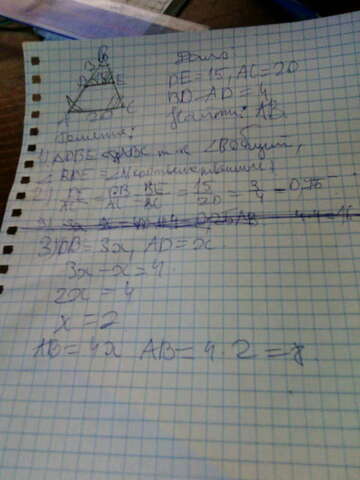 B
D 15 E
A 20 C
Дано
DE = 15, AC = 20
BD - AD = 4
Найти: AB.
Решение:
1) ΔDBE ∾ ΔABC т.к ∠B общий,
∠BDE = ∠A (соответственные)
2) DE/AC = DB/AB = BE/BC = 15/20 = 3/4 = 0,75
3) DB = 3x, AD = x.
3x - x = 4.
2x = 4
x = 2
AB = 4x AB = 4 · 2 = 8